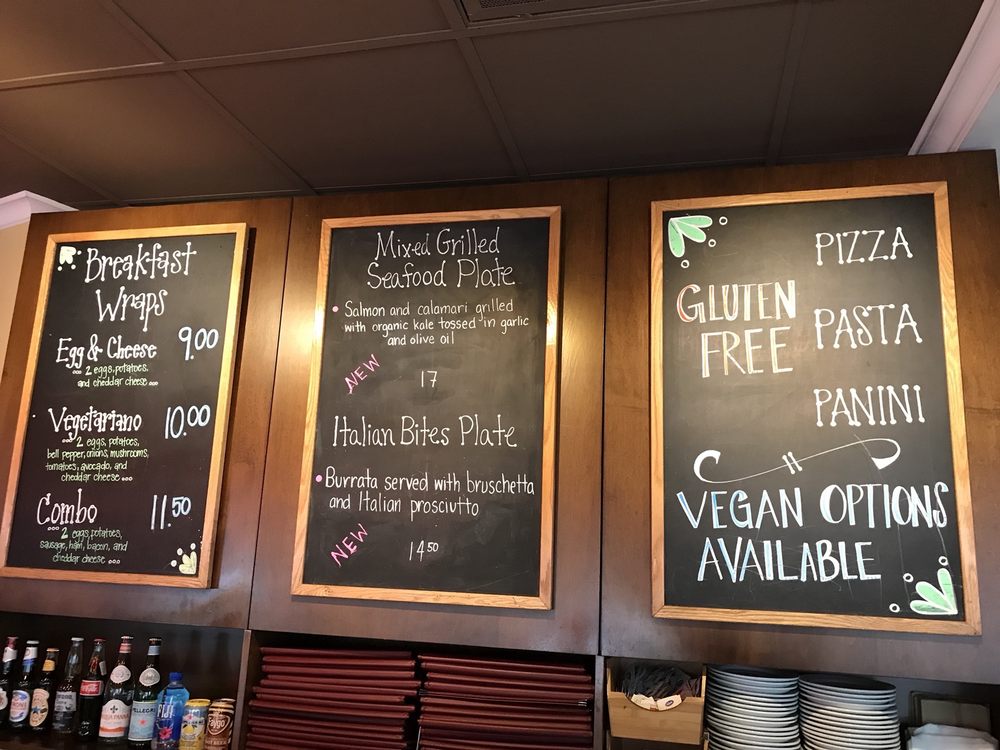 Breakfast
Wraps
Egg & Cheese 9.00
2 eggs, potatoes,
and cheddar cheese
Vegetariano 10.00
2 eggs, potatoes,
bell pepper, onions, mushrooms,
tomatoes, avocado, and
cheddar cheese
Combo 11.50
2 eggs, potatoes,
sausage, ham, bacon, and
cheddar cheese
Mixed Grilled
Seafood Plate
Salmon and calamari grilled
with organic kale tossed in garlic
and olive oil
NEW
17
Italian Bites Plate
Burrata served with bruschetta
and Italian prosciutto
NEW
14 50
GLUTEN
FREE
PIZZA
PASTA
PANINI
VEGAN OPTIONS
AVAILABLE
PANNA
PELLEGRI
FIJI
Faygo